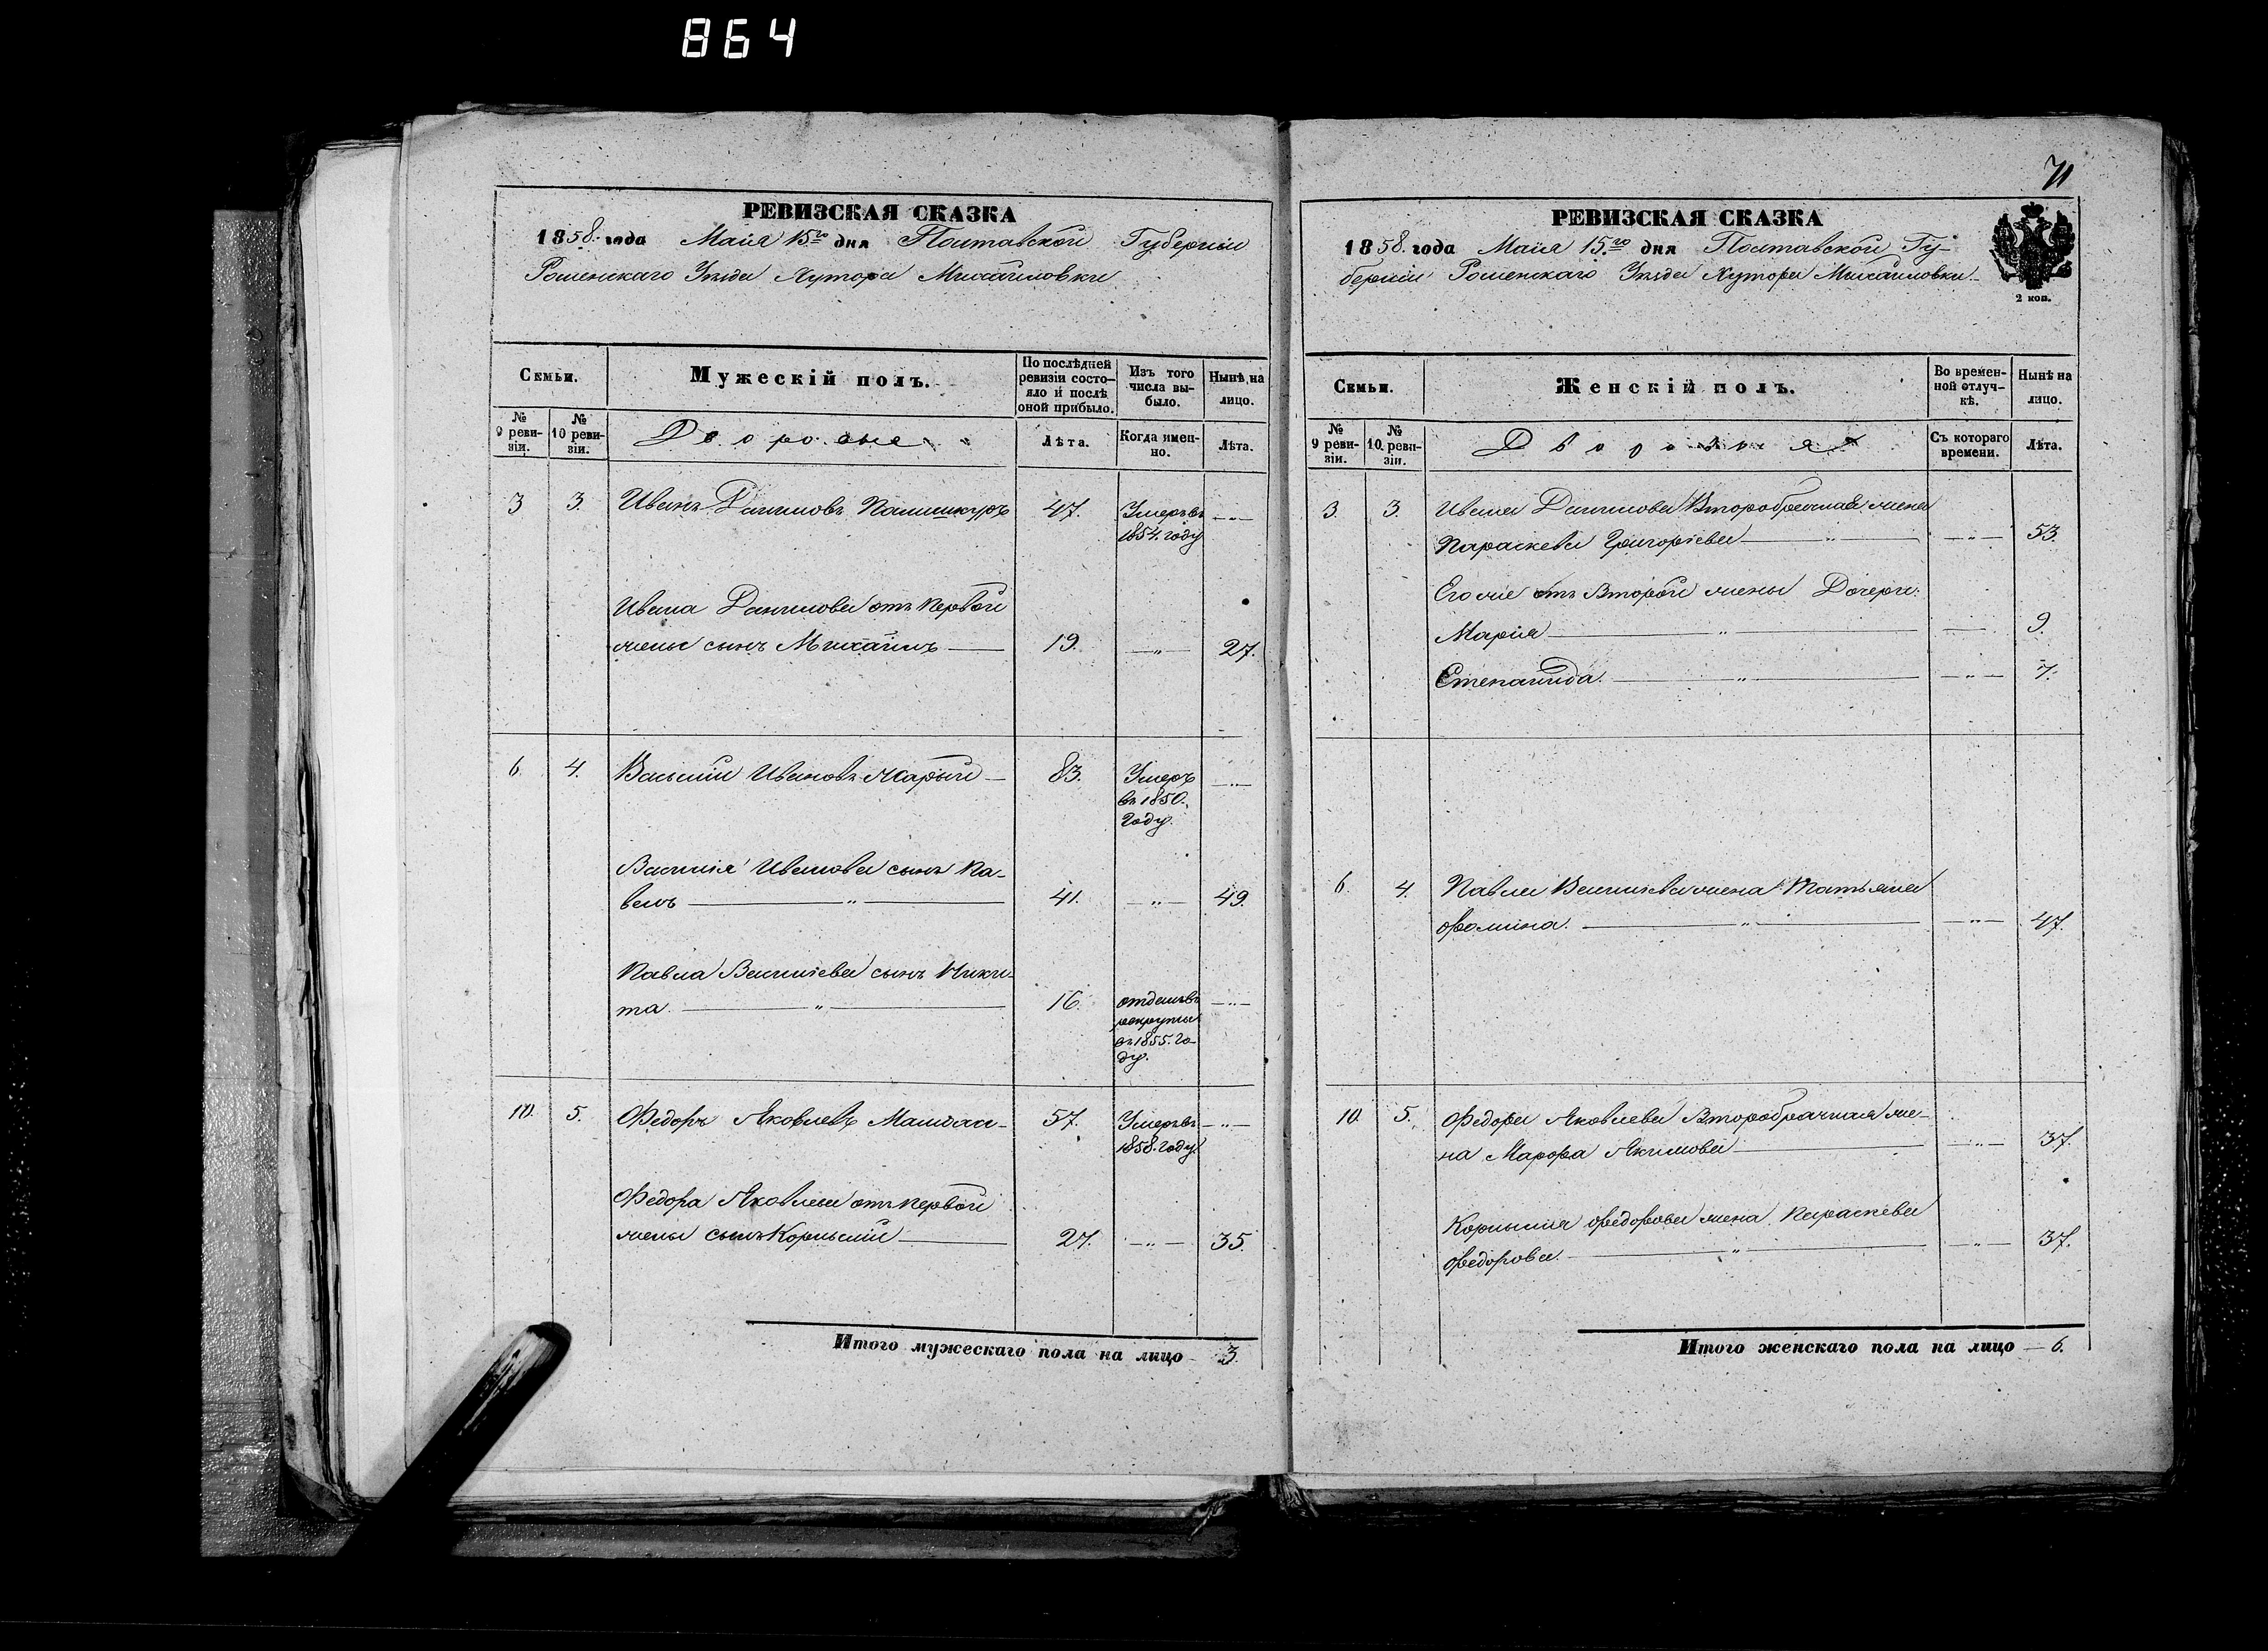 864
РЕВИЗСКАЯ СКАЗКА
1858. года Маія 15го дня Полтавской Губерніи
Роменскаго Уѣзда Хутора Михайловки
Семьи.
Мужескій полъ.
По послѣдней ревизіи состояло и послѣ оной прибыло.
Изъ того числа выбыло.
Нынѣ на лицо.
№ 9 ревизіи.
№ 10 ревизіи.
Дворовые
Лѣта.
Когда именно.
Лѣта.
3 3. Иванъ Даниловъ 47. Умеръ въ —"—
1854. году
Ивана Данилова отъ первой
жены сынъ Михаилъ 19. —"— 27.
6. 4. Василій Ивановъ Жарый 83. Умеръ —"—
въ 1850.
году.
Василія Иванова сынъ Па-
велъ —"— 41. —"— 49.
Павла Васильева сынъ Ники-
та —"— 16. отданъ въ —"—
рекруты
въ 1855. го-
ду.
10. 5. Федоръ Яковлевъ 57. Умеръ въ —"—
1858. году.
Федора Яковлева отъ первой
жены сынъ Корнилій 27. —"— 35.
Итого мужескаго пола на лицо 3.
71
РЕВИЗСКАЯ СКАЗКА
1858. года Маія 15.го дня Полтавской Гу-
берніи Роменскаго Уѣзда Хутора Михайловки
2 коп.
Семьи.
Женскій полъ.
Во временной отлучкѣ.
Нынѣ на лицо.
№ 9 ревизіи.
№ 10. ревизіи.
Дворовыя
Съ котораго времени.
Лѣта.
3. 3. Ивана Данилова Второбрачная жена
Параскева Григорьева —"— —"— 53.
Его же отъ Второй жены Дочери:
Марія —"— — 9.
Степанида. —"— —"— 7.
6. 4. Павла Васильева жена Татьяна
Фомина. —"— —"— 47.
10. 5. Федора Яковлева Второбрачная же-
на Марфа Якимова —"— 37.
Корнилія Федорова жена Параскева
Федорова. —"— —"— 37.
Итого женскаго пола на лицо — 6.